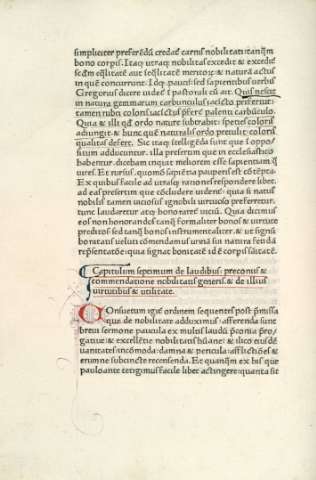 simpliciter preferēdā credas carnis nobilitati: tanq̃m
bono corpis. Itaq; utraq; nobilitas excedit & excedit̃
sc̃dm eq̃litatē aut īeq̃litatē meritoɽ: & natura actus
in quē concurrunt. Id q̃ pauci: sed sapientibus verbis
Gregorius dicere uidet̃ ī pastorali cū ait. Quis nesciat
in natura gemmarum carbunculus iacīcto preferatur:
tamen rubri coloris iacīctus p̃fert̃ palenti carbūculo.
Quia & illi q̃d ordo nature subtrahit: species coloris
adiungit & hunc quē naturalis ordo pretulit: coloris
qualitas defert. Sic itaq; ītelligēda sunt que ī opposi-
tum adducuntur. illa presertim que in ecclesiastico
habentur. dicebam inquit meliorem esse sapientiam q̃
uires. Et rursus. quomō sapiētia paupis est cōtēpta.
Ex quibus facile ad utrasq; rationes respondere libet.
ad eas presertim que cōcludere uidens: quia si natus
nobilis tamen uiciosus ignobili uirtuoso preferretur.
tunc laudaretur atq; honoraret̃ uiciū. Quia dicimus
eos non honorandos tanq̃ formaliter bonos & uirtute
preditos sed tanq̃ bonos instrumentaliter. & ut signū
bonitatis ueluti cōmendamus urinā sui natura fetidā
rep̃sentatōe: quia signat bonitatē īdē corpis sāitatē.
Capitulum septimum de laudibus: preconiis &
commendatione nobilitatis generis. & de illius
uirtutibus & utilitate.
COnsuetum igit̃ ordinem sequentes post p̃missa
que de nobilitate adduximus: afferenda sunt
breui sermone pauxula ex multis laudū p̃conia p̃ro-
gatiue: & excellētie nobilitatis hūane: & ilico eiusdē
uanitates īcōmoda: damna & pericula: afflictiōes &
erumne subiuncte recensenda. Et quanq̃m ex his que
pauloante tetigimus facile liber actingere: quanta sit